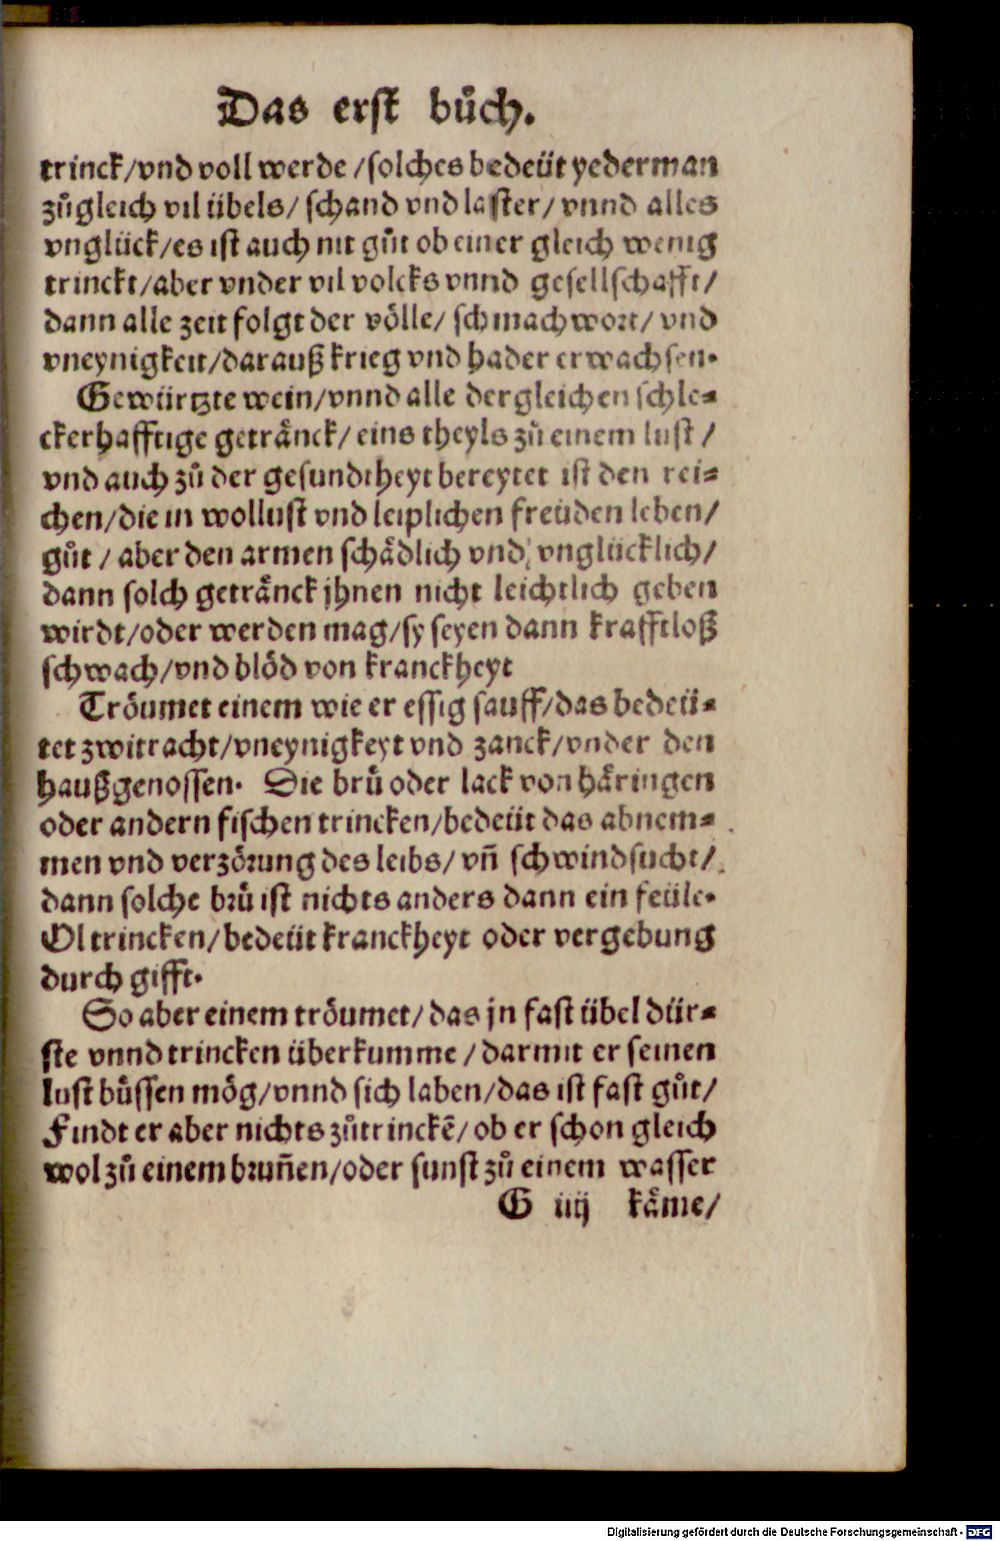 Das erst bůch.
trinck/vnd voll werde/solches bedeüt yederman
zůgleich vil übels/ schand vnd laster/ vnnd alles
vnglück/es ist auch nit gůt ob einer gleich wenig
trinckt/aber vnder vil volcks vnnd gesellschafft/
dann alle zeit folgt der völle/ schmachwort/ vnd
vneynigkeit/darauß krieg vnd hader erwachsen.
Gewürtzte wein/vnnd alle dergleichen schle⸗
ckerhafftige geträ̈nck/ eins theyls zů einem lust /
vnd auch zů der gesundtheyt bereytet ist den rei⸗
chen/die in wollust vnd leiplichen freüden leben/
gůt / aber den armen schädlich vnd vnglücklich/
dann solch getränck jhnen nicht leichtlich geben
wirdt/oder werden mag/sy seyen dann krafftloß
schwach/vnd blöd von kranckheyt
Tröumet einem wie er essig sauff/das bedeü⸗
tet zwitracht/vneynigkeyt vnd zanck/vnder den
haußgenossen. Die brů oder lack von häringen
oder andern fischen trincken/bedeüt das abnem⸗
men vnd verzörung des leibs/ vñ schwindsucht/
dann solche brů ist nichts anders dann ein feüle.
Ol trincken/bedeüt kranckheyt oder vergebung
durch gifft.
So aber einem tröumet/das jn fast übel dür⸗
ste vnnd trincken überkumme/darmit er seinen
lust bůssen mög/vnnd sich laben/das ist fast gůt/
Findt er aber nichts zůtrinckē/ob er schon gleich
wol zů einem bruñen/oder sunst zů einem wasser
G iiij käme/
Digitalisierung gefördert durch die Deutsche Forschungsgemeinschaft - DFG